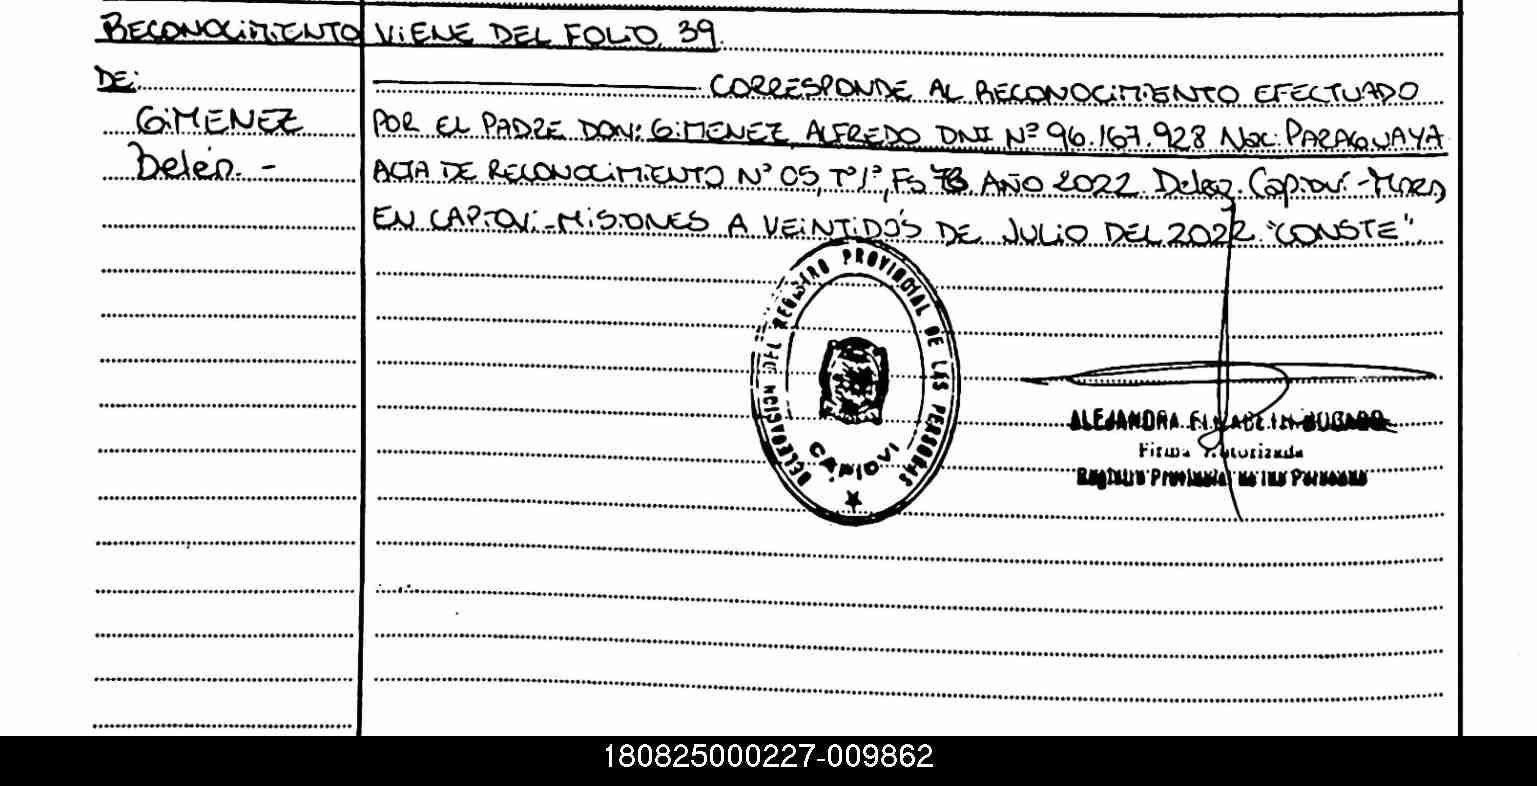 RECONOCIMIENTO VIENE DEL FOLIO 39
DE: CORRESPONDE AL RECONOCIMIENTO EFECTUADO
GIMENEZ POR EL PADRE DON: GIMENEZ, ALFREDO DNI Nº 96.167.928 Nac. PARAGUAYA
Belén.- ACTA DE RECONOCIMIENTO Nº 05, Tº 1º, Fº AÑO 2022. Deleg. Capioví-Mnes,
EN CAPIOVÍ-MISIONES A VEINTIDÓS DE JULIO DEL 2022. "CONSTE".
DELEGACION DEL REGISTRO PROVINCIAL DE LAS PERSONAS
CAPIOVI
ALEJANDRA
Firma Autorizada
Registro Provincial de las Personas
180825000227-009862